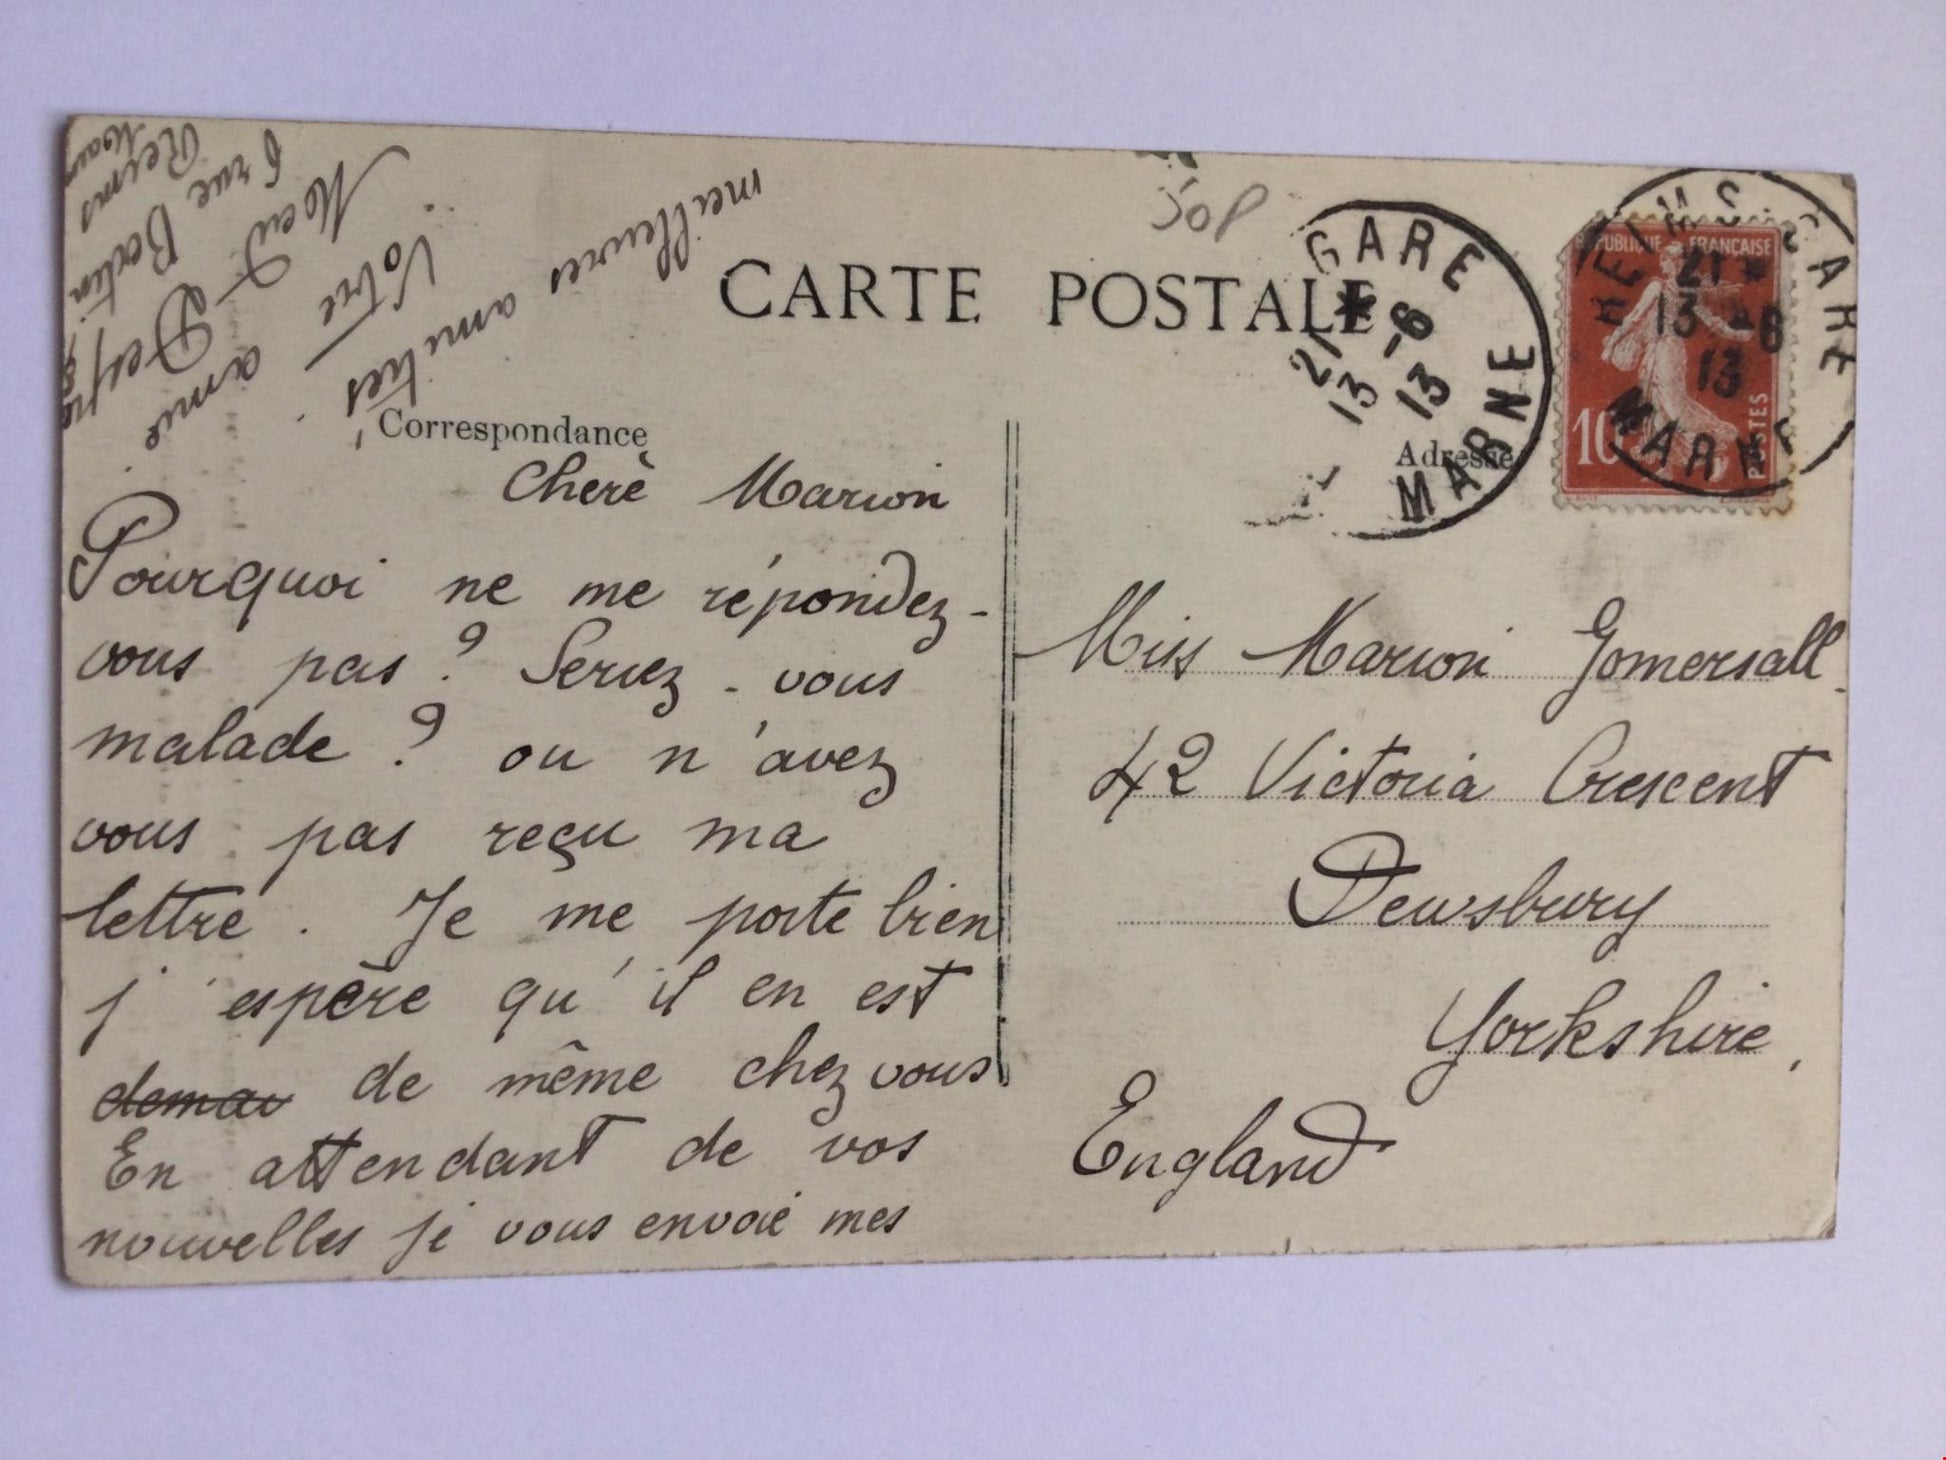 CARTE POSTALE
50P
Correspondance
Adresse
GARE
MARNE
21 *
13 -6
13
REIMS GARE
21 *
13 -6
13
MARNE
REPUBLIQUE FRANCAISE
10
POSTES
Cherè Marion
Pourquoi ne me répondez-
vous pas ? Seriez-vous
malade ? ou n'avez
vous pas reçu ma
lettre. Je me porte bien
j'espère qu'il en est
de même chez vous
En attendant de vos
nouvelles je vous envoie mes
meilleures amitiés
Votre
amie
6 rue
Reims
Miss Marion Gomersall
42 Victoria Crescent
Dewsbury
Yorkshire,
England